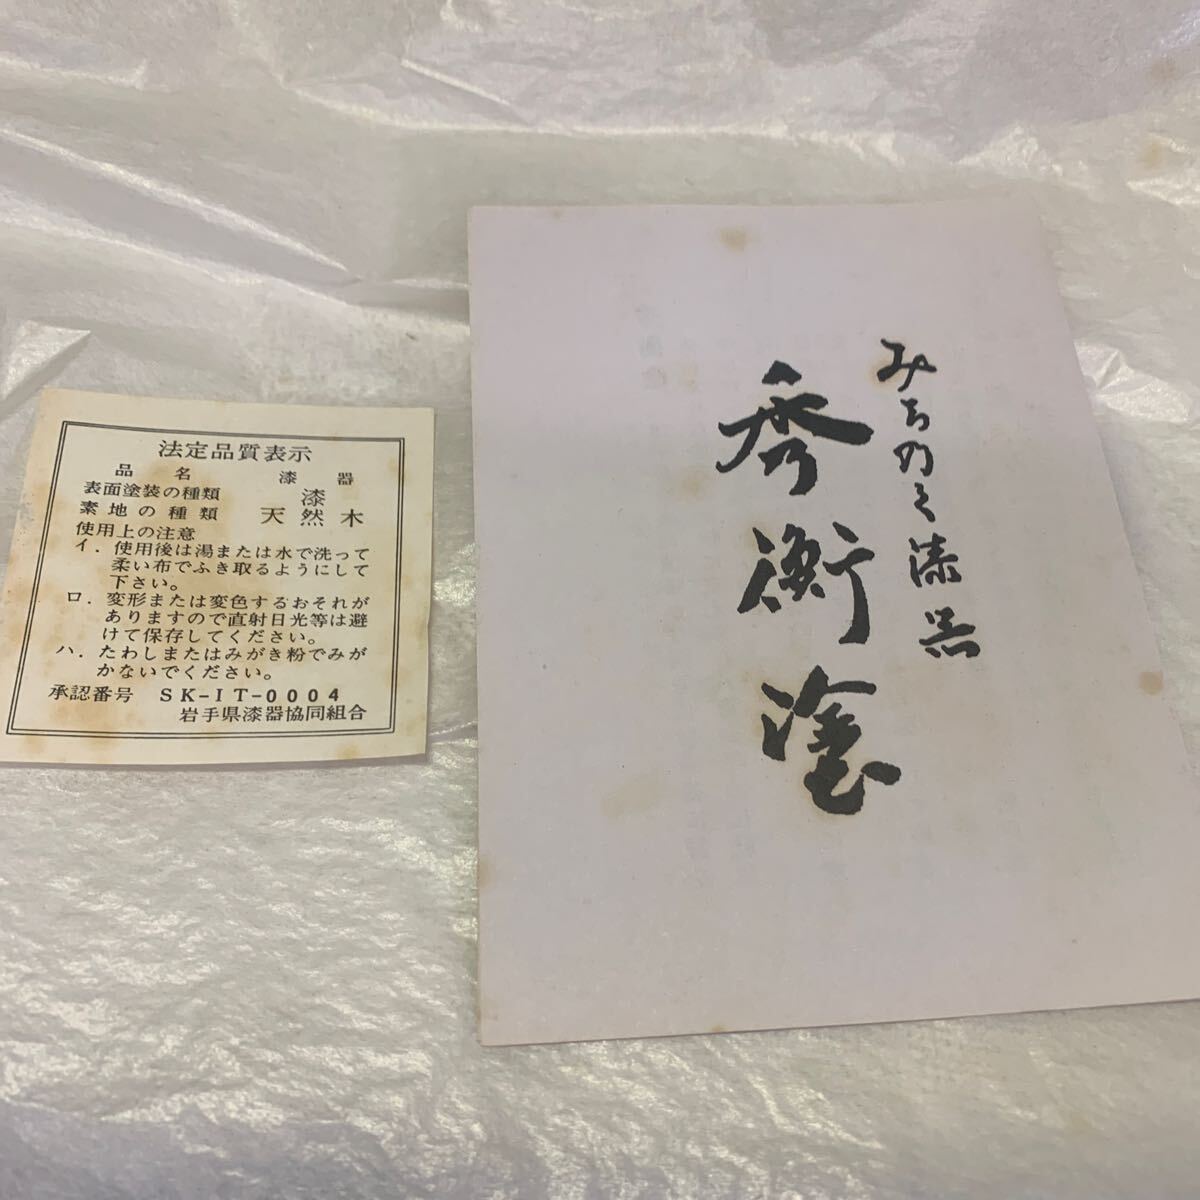 法定品質表示
品名 漆器
表面塗装の種類 漆
素地の種類 天然木
使用上の注意
イ．使用後は湯または水で洗って
柔い布でふき取るようにして
下さい。
ロ．変形または変色するおそれが
ありますので直射日光等は避
けて保存してください。
ハ．たわしまたはみがき粉でみが
かないでください。
承認番号 SK-IT-0004
岩手県漆器協同組合
みちのく漆器
秀衡塗